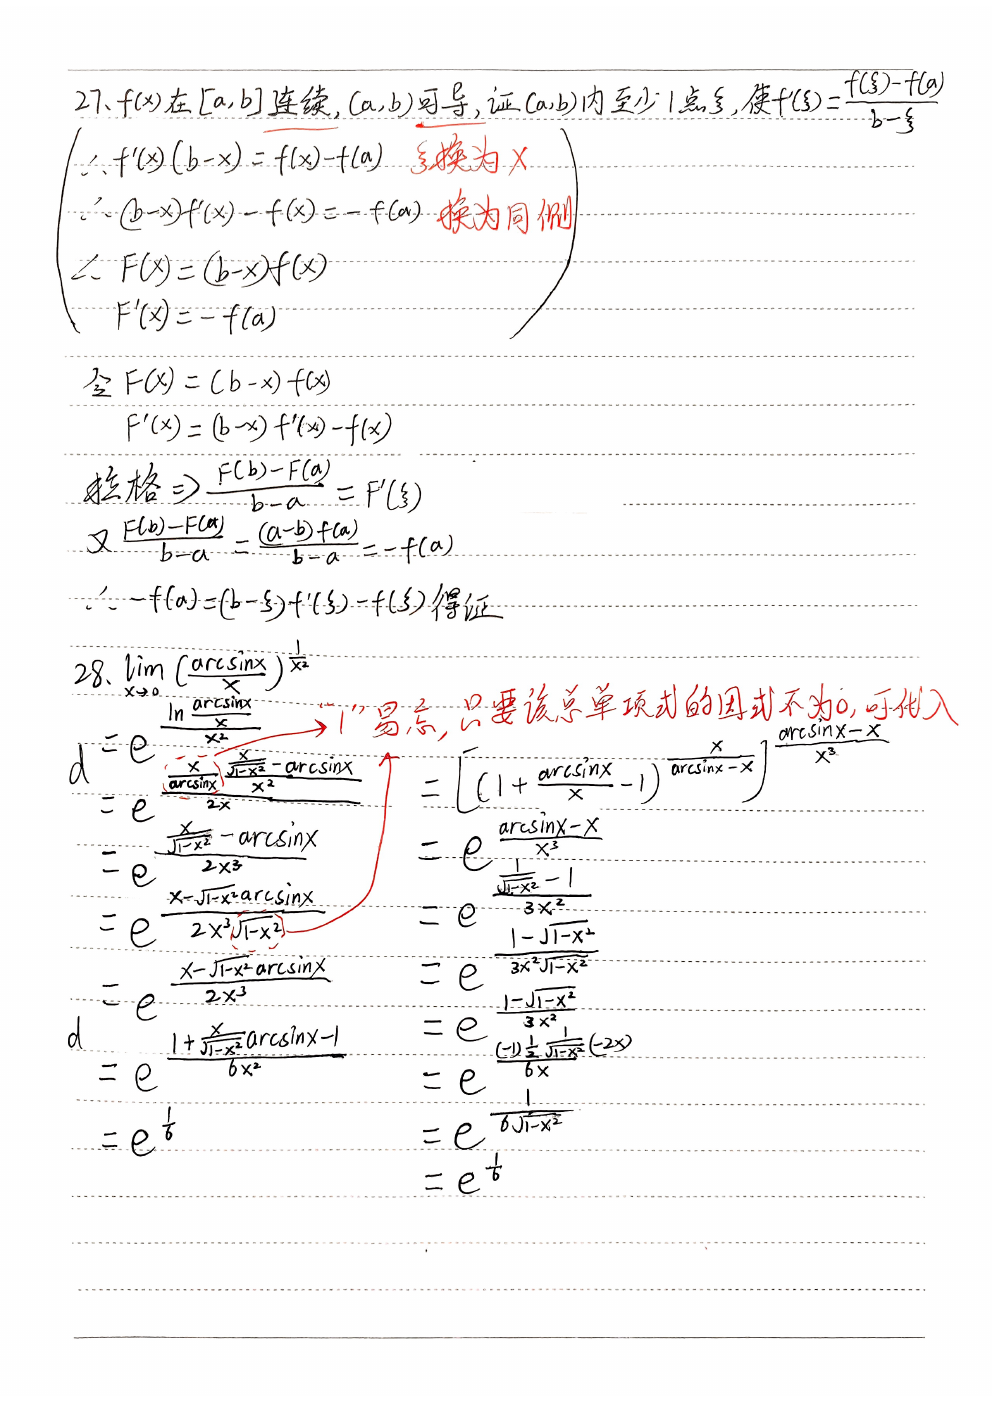 27、f(x)在[a,b]连续,(a,b)可导,证(a,b)内至少1点ξ,使f'(ξ)=\frac{f(ξ)-f(a)}{b-ξ}
∴ f'(x)(b-x)=f(x)-f(a) ξ换为x
∴ (b-x)f'(x)-f(x)=-f(a) 换为同侧
∴ F(x)=(b-x)f(x)
F'(x)=-f(a)
令 F(x)=(b-x)f(x)
F'(x)=(b-x)f'(x)-f(x)
拉格⇒ \frac{F(b)-F(a)}{b-a}=F'(ξ)
又 \frac{F(b)-F(a)}{b-a}=\frac{(a-b)f(a)}{b-a}=-f(a)
∴ -f(a)=(b-ξ)f'(ξ)-f(ξ)得证
28、\lim_{x→0}(\frac{arcsinx}{x})^{\frac{1}{x^2}}
=e^{\frac{ln\frac{arcsinx}{x}}{x^2}}
d
=e^{\frac{\frac{x}{arcsinx}\frac{\frac{x}{\sqrt{1-x^2}}-arcsinx}{x^2}}{2x}}
=e^{\frac{\frac{x}{\sqrt{1-x^2}}-arcsinx}{2x^3}}
=e^{\frac{x-\sqrt{1-x^2}arcsinx}{2x^3\sqrt{1-x^2}}}
=e^{\frac{x-\sqrt{1-x^2}arcsinx}{2x^3}}
d
=e^{\frac{1+\frac{x}{\sqrt{1-x^2}}arcsinx-1}{6x^2}}
=e^{\frac{1}{6}}
"1"易忘,只要该总单项式的因式不为0,可代入
=[(1+\frac{arcsinx}{x}-1)^{\frac{x}{arcsinx-x}}]^{\frac{arcsinx-x}{x^3}}
=e^{\frac{arcsinx-x}{x^3}}
=e^{\frac{\frac{1}{\sqrt{1-x^2}}-1}{3x^2}}
=e^{\frac{1-\sqrt{1-x^2}}{3x^2\sqrt{1-x^2}}}
=e^{\frac{1-\sqrt{1-x^2}}{3x^2}}
=e^{\frac{(-1)\frac{1}{2}\frac{1}{\sqrt{1-x^2}}(-2x)}{6x}}
=e^{\frac{1}{6\sqrt{1-x^2}}}
=e^{\frac{1}{6}}